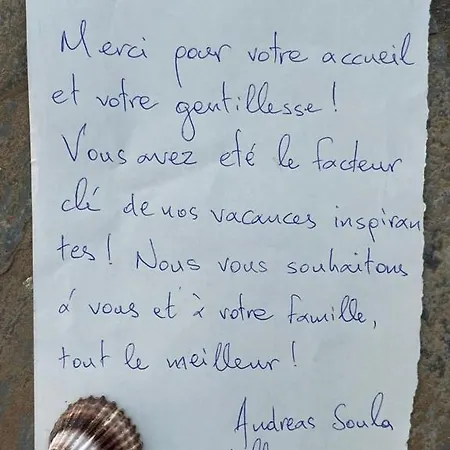 Merci pour votre accueil
et votre gentillesse!
Vous avez eté le facteur
clé de nos vacances inspiran
tes! Nous vous souhaitons
á vous et à votre famille,
tout le meilleur!
Andreas Soula